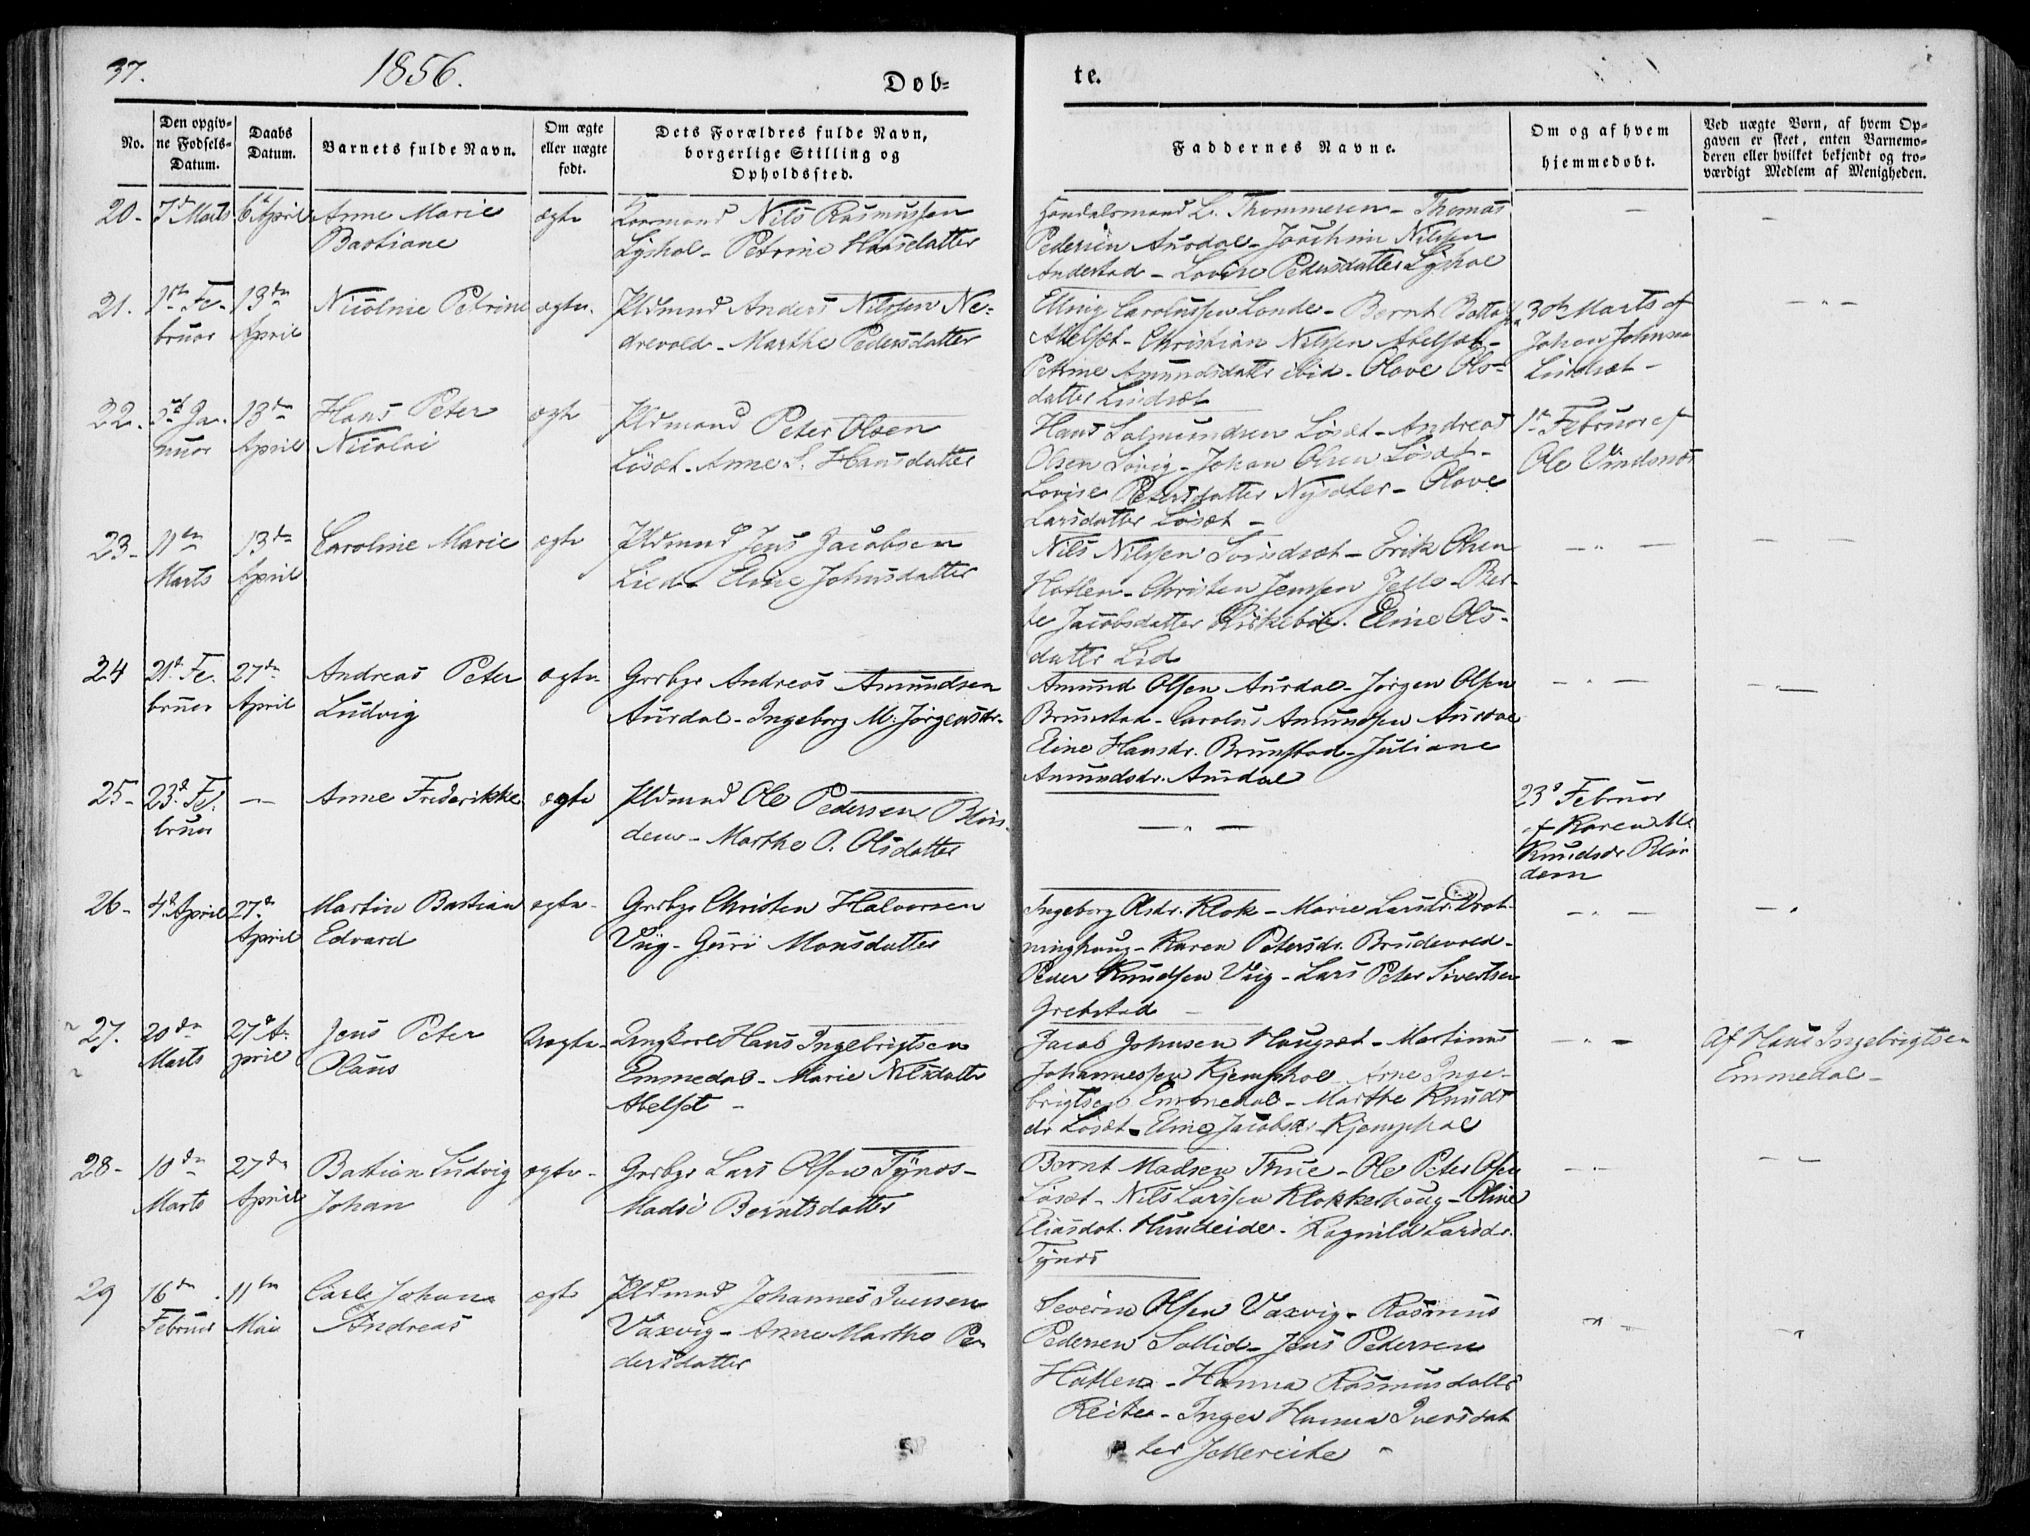 37.
1856.
Døb=
te.
No.
Den opgiv=
ne Fødsels=
Datum.
Daabs
Datum.
Barnets fulde Navn.
Om ægte
eller uægte
født.
Dets Forældres fulde Navn,
borgerlige Stilling og
Opholdssted.
Faddernes Navne.
Om og af hvem
hjemmedøbt.
Ved uægte Børn, af hvem Op=
gaven er skeet, enten Barnemo=
deren eller hvilket bekjendt og tro=
værdigt Medlem af Menigheden.
20-
7d Marts
6t April
Anne Marie
Bastiane
ægte
Nils Rasmussen
Lyshol- Petrine Hansdatter
Handelsmand L. Thommesen- Thomas
Pedersen Aursdal- Joachim Nilssen
Andestad- Lovise Pedersdatter Lyshol
21.
1ste Fe-
bruar
13de
April
Nicoline Petrine
ægte.
Pldmand Anders Nilssen Ne-
drevold- Marthe Pedersdatter
Elling Carolussen Lande- Bernt
Abelsæt- Christian Nilssen Abelsæt-
Petrine Amundsdatter ibid- Olave Ols-
datter Lindsæt
30te Marts af
Johan Johnsen
Lindsæt-
22.
Ja-
nuar
13de
April
Hans Peter
Nicolai
ægte
Pldmand Peter Olsen
Løsæt- Anne S. Hansdatter
Hans Salmundsen Løsæt- Andreas
Olsen Løvig- Johan Olsen Løsæt-
Lovise Petersdatter Nysæter- Olave
Larsdatter Løsæt-
1ste Februar af
Ole Vindsnæs
23-
11te
Marts
13de
April
Caroline Marie
ægte
Pldmand Jens Jacobsen
Lied- Eline Johnsdatter
Nils Nilssen- Erik Olsen
Hatlen- Christen Jenssen Jelle- Ber-
te Jacobsdatter Kirkebøe. Eline Ols-
datter Lid
24
21d Fe-
bruar
27de
April
Andreas Peter
Ludvig
ægte
Grbgr Andreas Amundsen
Aursdal- Ingeborg M: Jørgensdr-
Amund Olsen Aursdal- Jørgen Olsen
Brunstad- Carolus Amundsen Aursdal
Eline Hansdr. Brunstad- Juliane
Amundsdr. Aursdal
25-
23d Fe-
bruar
Anne Frederikke
ægte
Pldmand Ole Pedersen Blin-
dem- Marthe O. Olsdatter
23d Februar
af Karen M.
Knudsdr Blin
dem
26-
4d April
27d
April
Martin Bastian
Edvard
ægte-
Grbgr Christen Halvorsen
Viig- Guri Monsdatter
Ingeborg Olsdr. Klok- Marie Larsdr. Drot-
ninghoug- Karen Petersdr. Brudevold-
Peder Knudssen Viig- Lars Peter Sivertsen
Grebstad
27.
20de
Marts
27d A-
pril
Jens Peter
Olaus
Uægte-
Ungkarl Hans Ingebrigtsen
Emmedal- Marie Nilsdatter
Abelsæt-
Jacob Johnsen Haugsæt- Martinus
Johannessen Kjemphol- Arne Inge-
brigtsen Emmedal- Marthe Knuds
dr Løsæt- Eline Jacobsdr- Kjemphol
Af Hans Ingebrigtsen
Emmedal-
28-
10de
Marts
27de
April
Bastian Ludvig
Johan
ægte-
Grbgr Lars Olsen Tynæs-
Madsi Berntsdatter
Bernt Madsen Thue- Ole Peter Olsen
Løsæt- Nils Larssen Klokkerhoug- Oline
Eliasdat. Hundeide- Ragnild Larsdr.
Tynæs
29
16de
Februar
11te
Mai
Carl Johan
Andreas
ægte
Pldmand Johannes Iversen
Vaxvig- Anne Marthe Pe-
dersdatter
Severin Olsen Vaxvig- Rasmus
Pedersen Sollid- Jens Pedersen
Hatlen- Hanna Rasmusdatter
Reite- Inger Hanna Iversdat
ter Jellereite